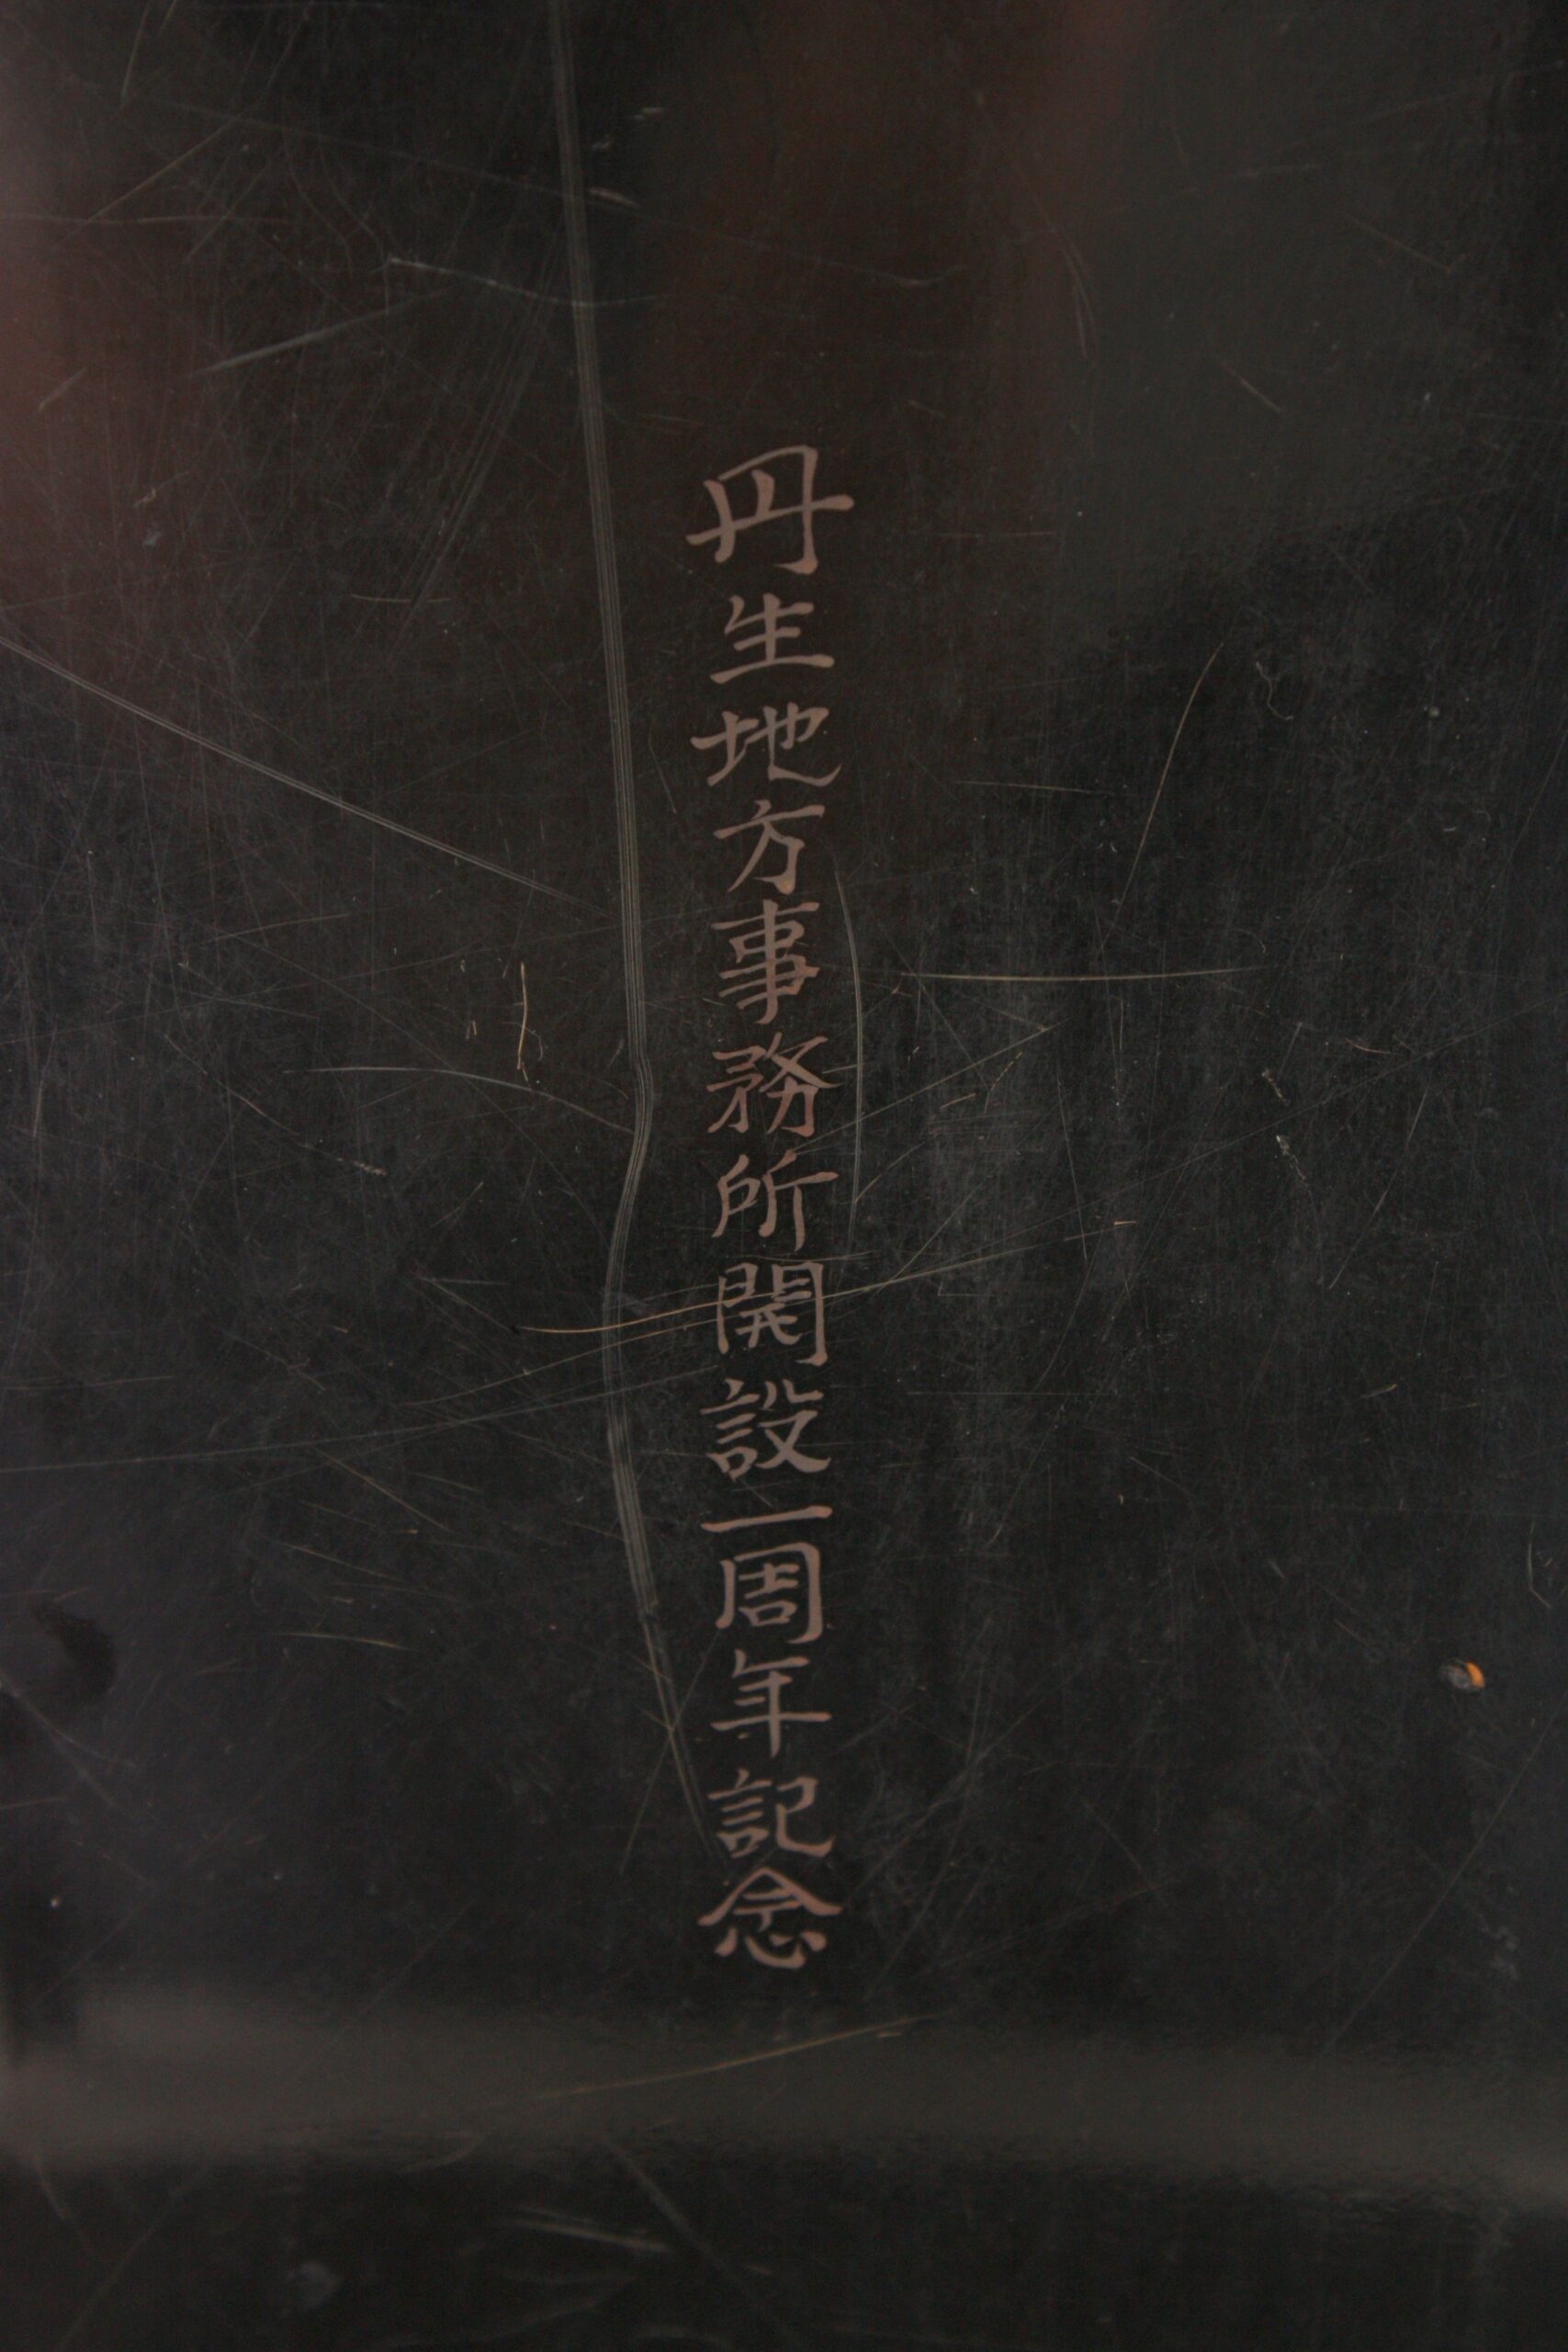 丹生地方事務所開設一周年記念